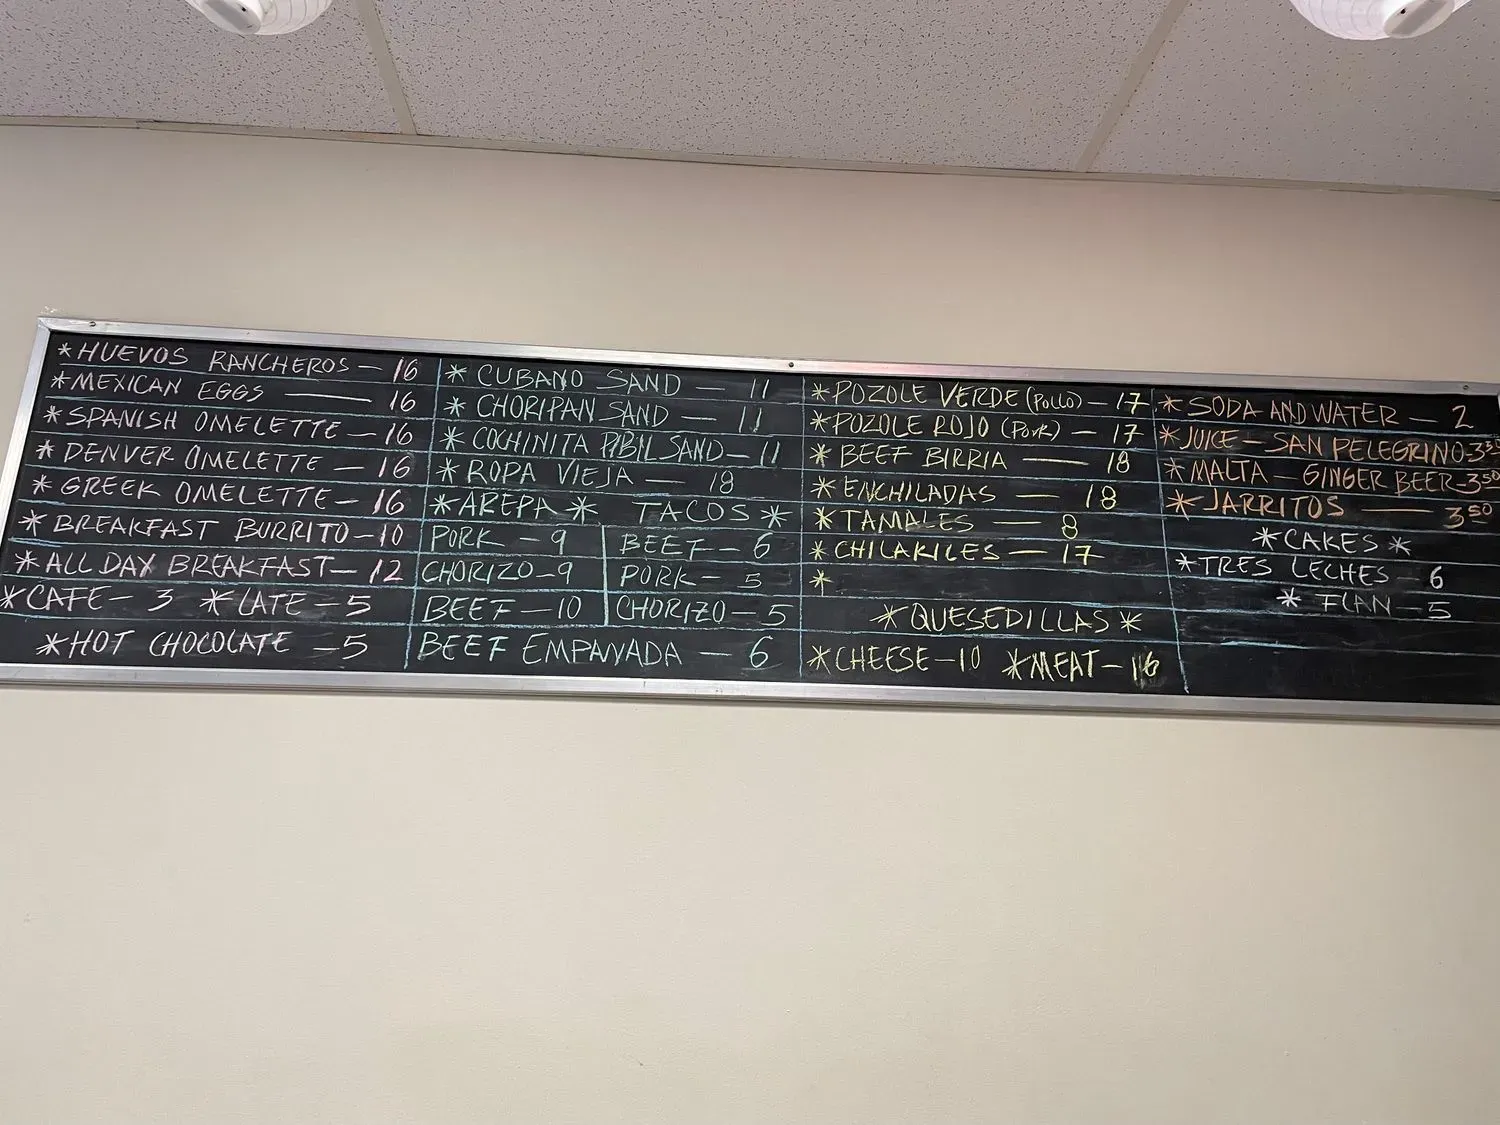 *HUEVOS RANCHEROS - 16
*MEXICAN EGGS — 16
*SPANISH OMELETTE - 16
*DENVER OMELETTE - 16
*GREEK OMELETTE - 16
*BREAKFAST BURRITO - 10
*ALL DAY BREAKFAST - 12
*CAFE - 3 *LATE - 5
*HOT CHOCOLATE - 5
*CUBANO SAND - 11
*CHORIPAN SAND - 11
*COCHINITA PIBIL SAND - 11
*ROPA VIEJA - 18
*AREPA* TACOS*
PORK - 9 BEEF - 6
CHORIZO - 9 PORK - 5
BEEF - 10 CHORIZO - 5
BEEF EMPANADA - 6
*POZOLE VERDE (POLLO) - 17
*POZOLE ROJO (PORK) - 17
*BEEF BIRRIA — 18
*ENCHILADAS - 18
*TAMALES - 8
*CHILAKILES - 17
*
*QUESEDILLAS*
*CHEESE - 10 *MEAT - 16
*SODA AND WATER - 2
*JUICE - SAN PELEGRINO - 3.50
*MALTA - GINGER BEER - 3.50
*JARRITOS — 3.50
*CAKES*
*TRES LECHES - 6
*FLAN - 5